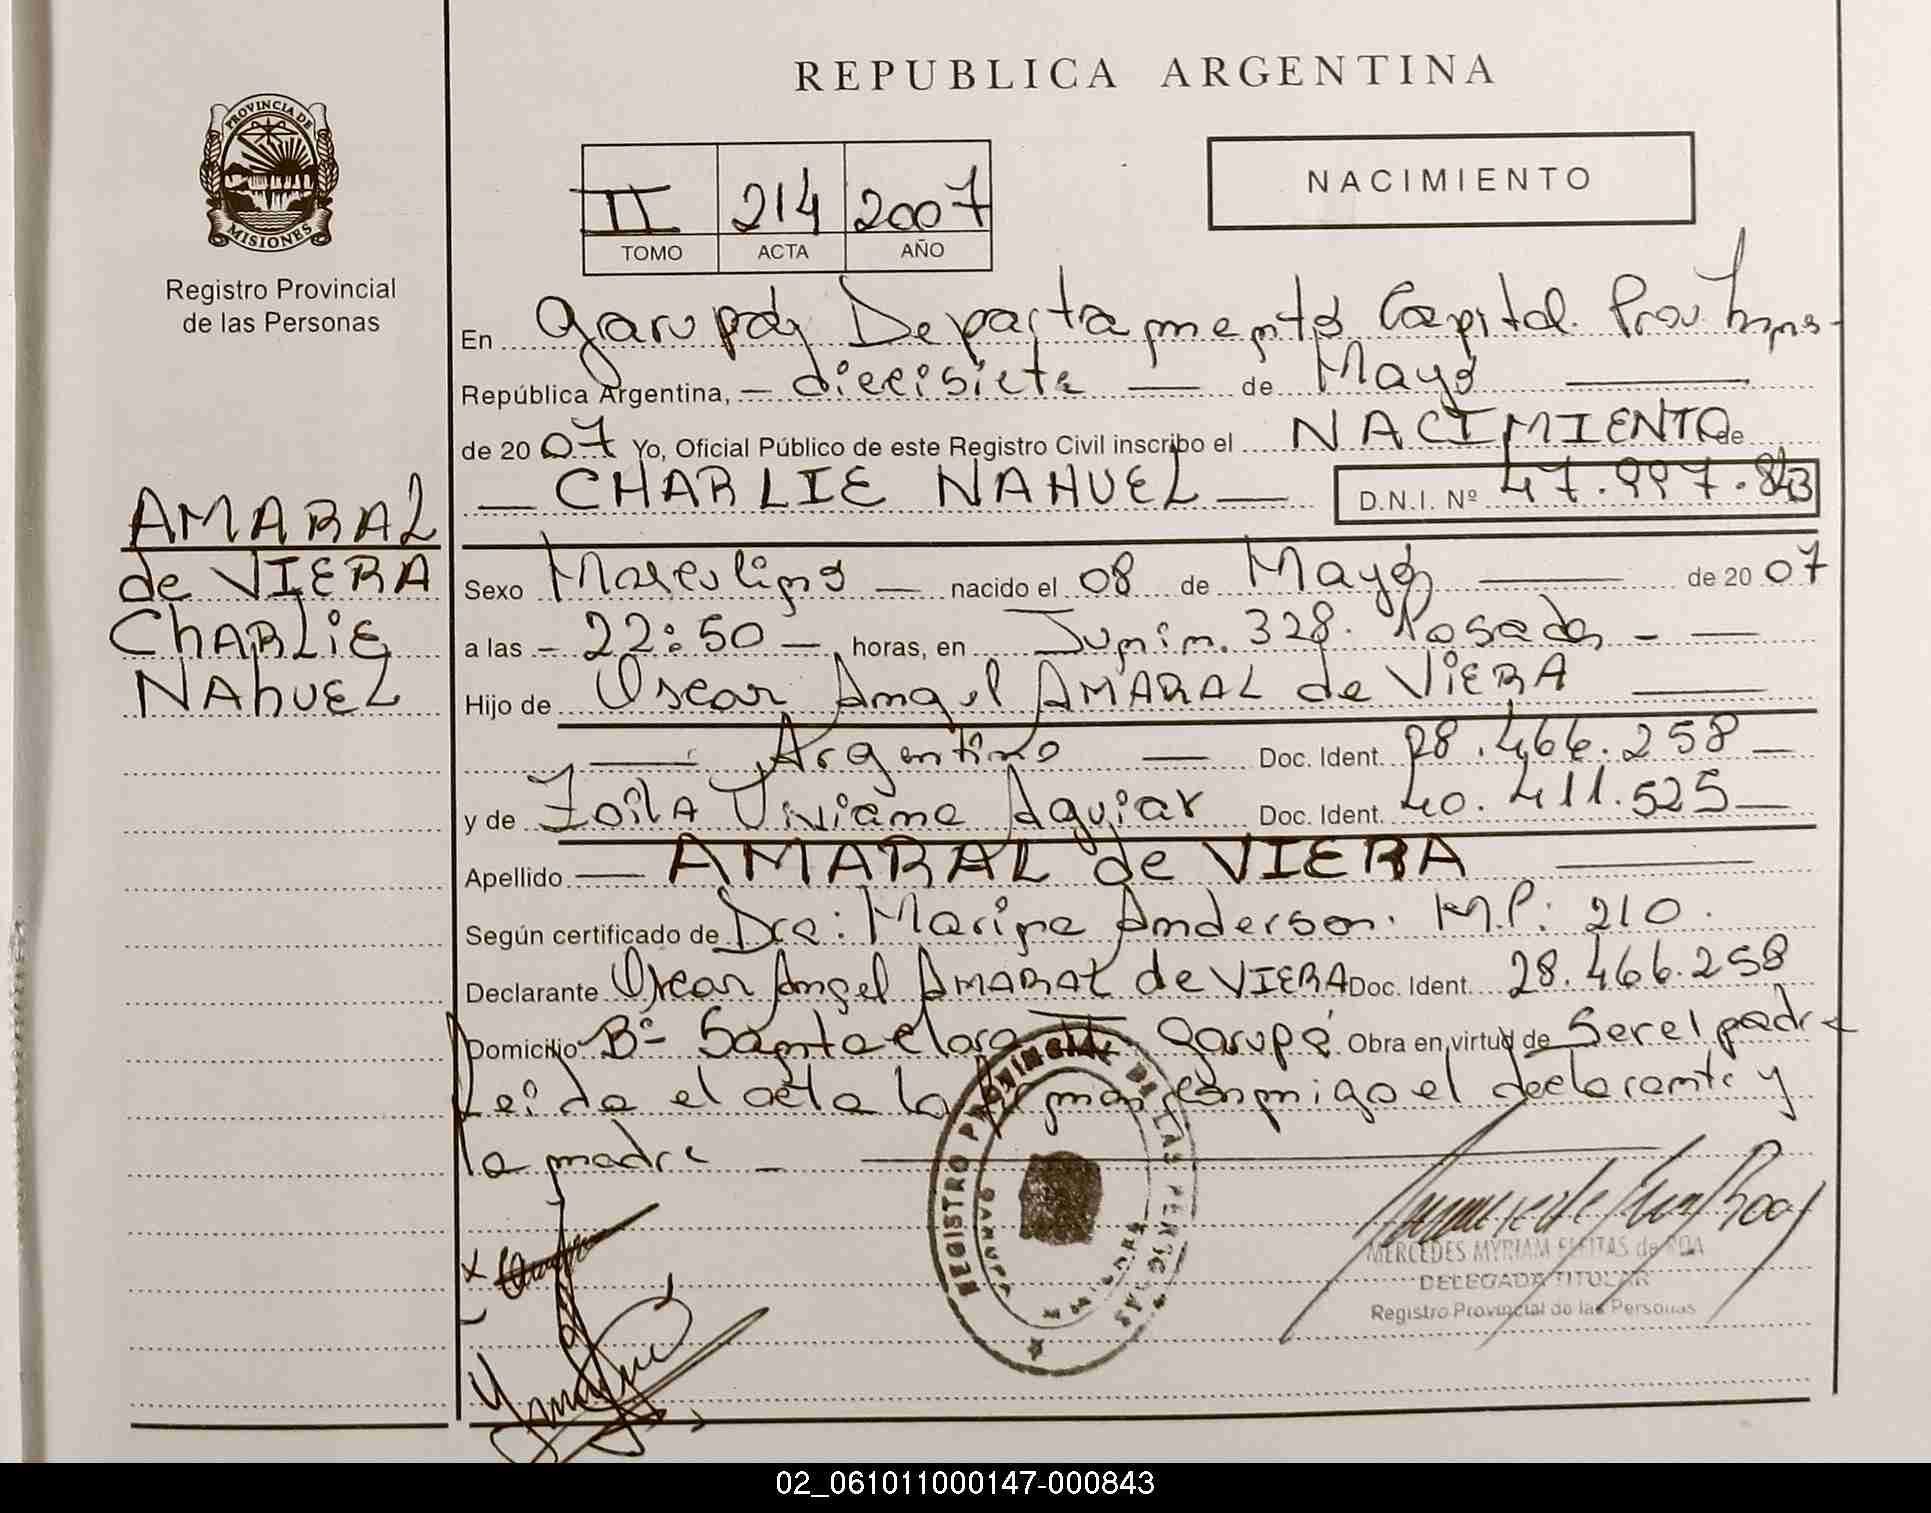 REPUBLICA ARGENTINA
PROVINCIA DE
MISIONES
Registro Provincial
de las Personas
II 214 2007
TOMO ACTA AÑO
NACIMIENTO
En Garupá Departamento Capital. Prov.
República Argentina, — diecisiete — de Mayo —
de 2007 Yo, Oficial Público de este Registro Civil inscribo el NACIMIENTO de
— CHARLIE NAHUEL — D.N.I. Nº 47.997.843
AMARAL
de VIERA
ChARLiE
NAhUEL
Sexo Masculino — nacido el 08 de Mayo — de 2007
a las - 22:50 — horas, en Junín. 328. Posadas - —
Hijo de Oscar Angel AMARAL de VIERA —
— Argentino — Doc. Ident. 28.466.258 —
y de Zoila Viviana Aguiar Doc. Ident. 40.411.525 —
Apellido — AMARAL de VIERA —
Según certificado de Dra: Marina Anderson. M.P: 210.
Declarante Oscar Angel AMARAL de VIERA Doc. Ident. 28.466.258
Domicilio Bº Santa Clara II Garupá Obra en virtud de Ser el padre
Leida el acta la firman conmigo el declarante y
la madre —
REGISTRO PROVINCIAL DE LAS PERSONAS
GARUPA
MISIONES
MERCEDES MYRIAM FLEITAS de ROA
DELEGADA TITULAR
Registro Provincial de las Personas
02_061011000147-000843